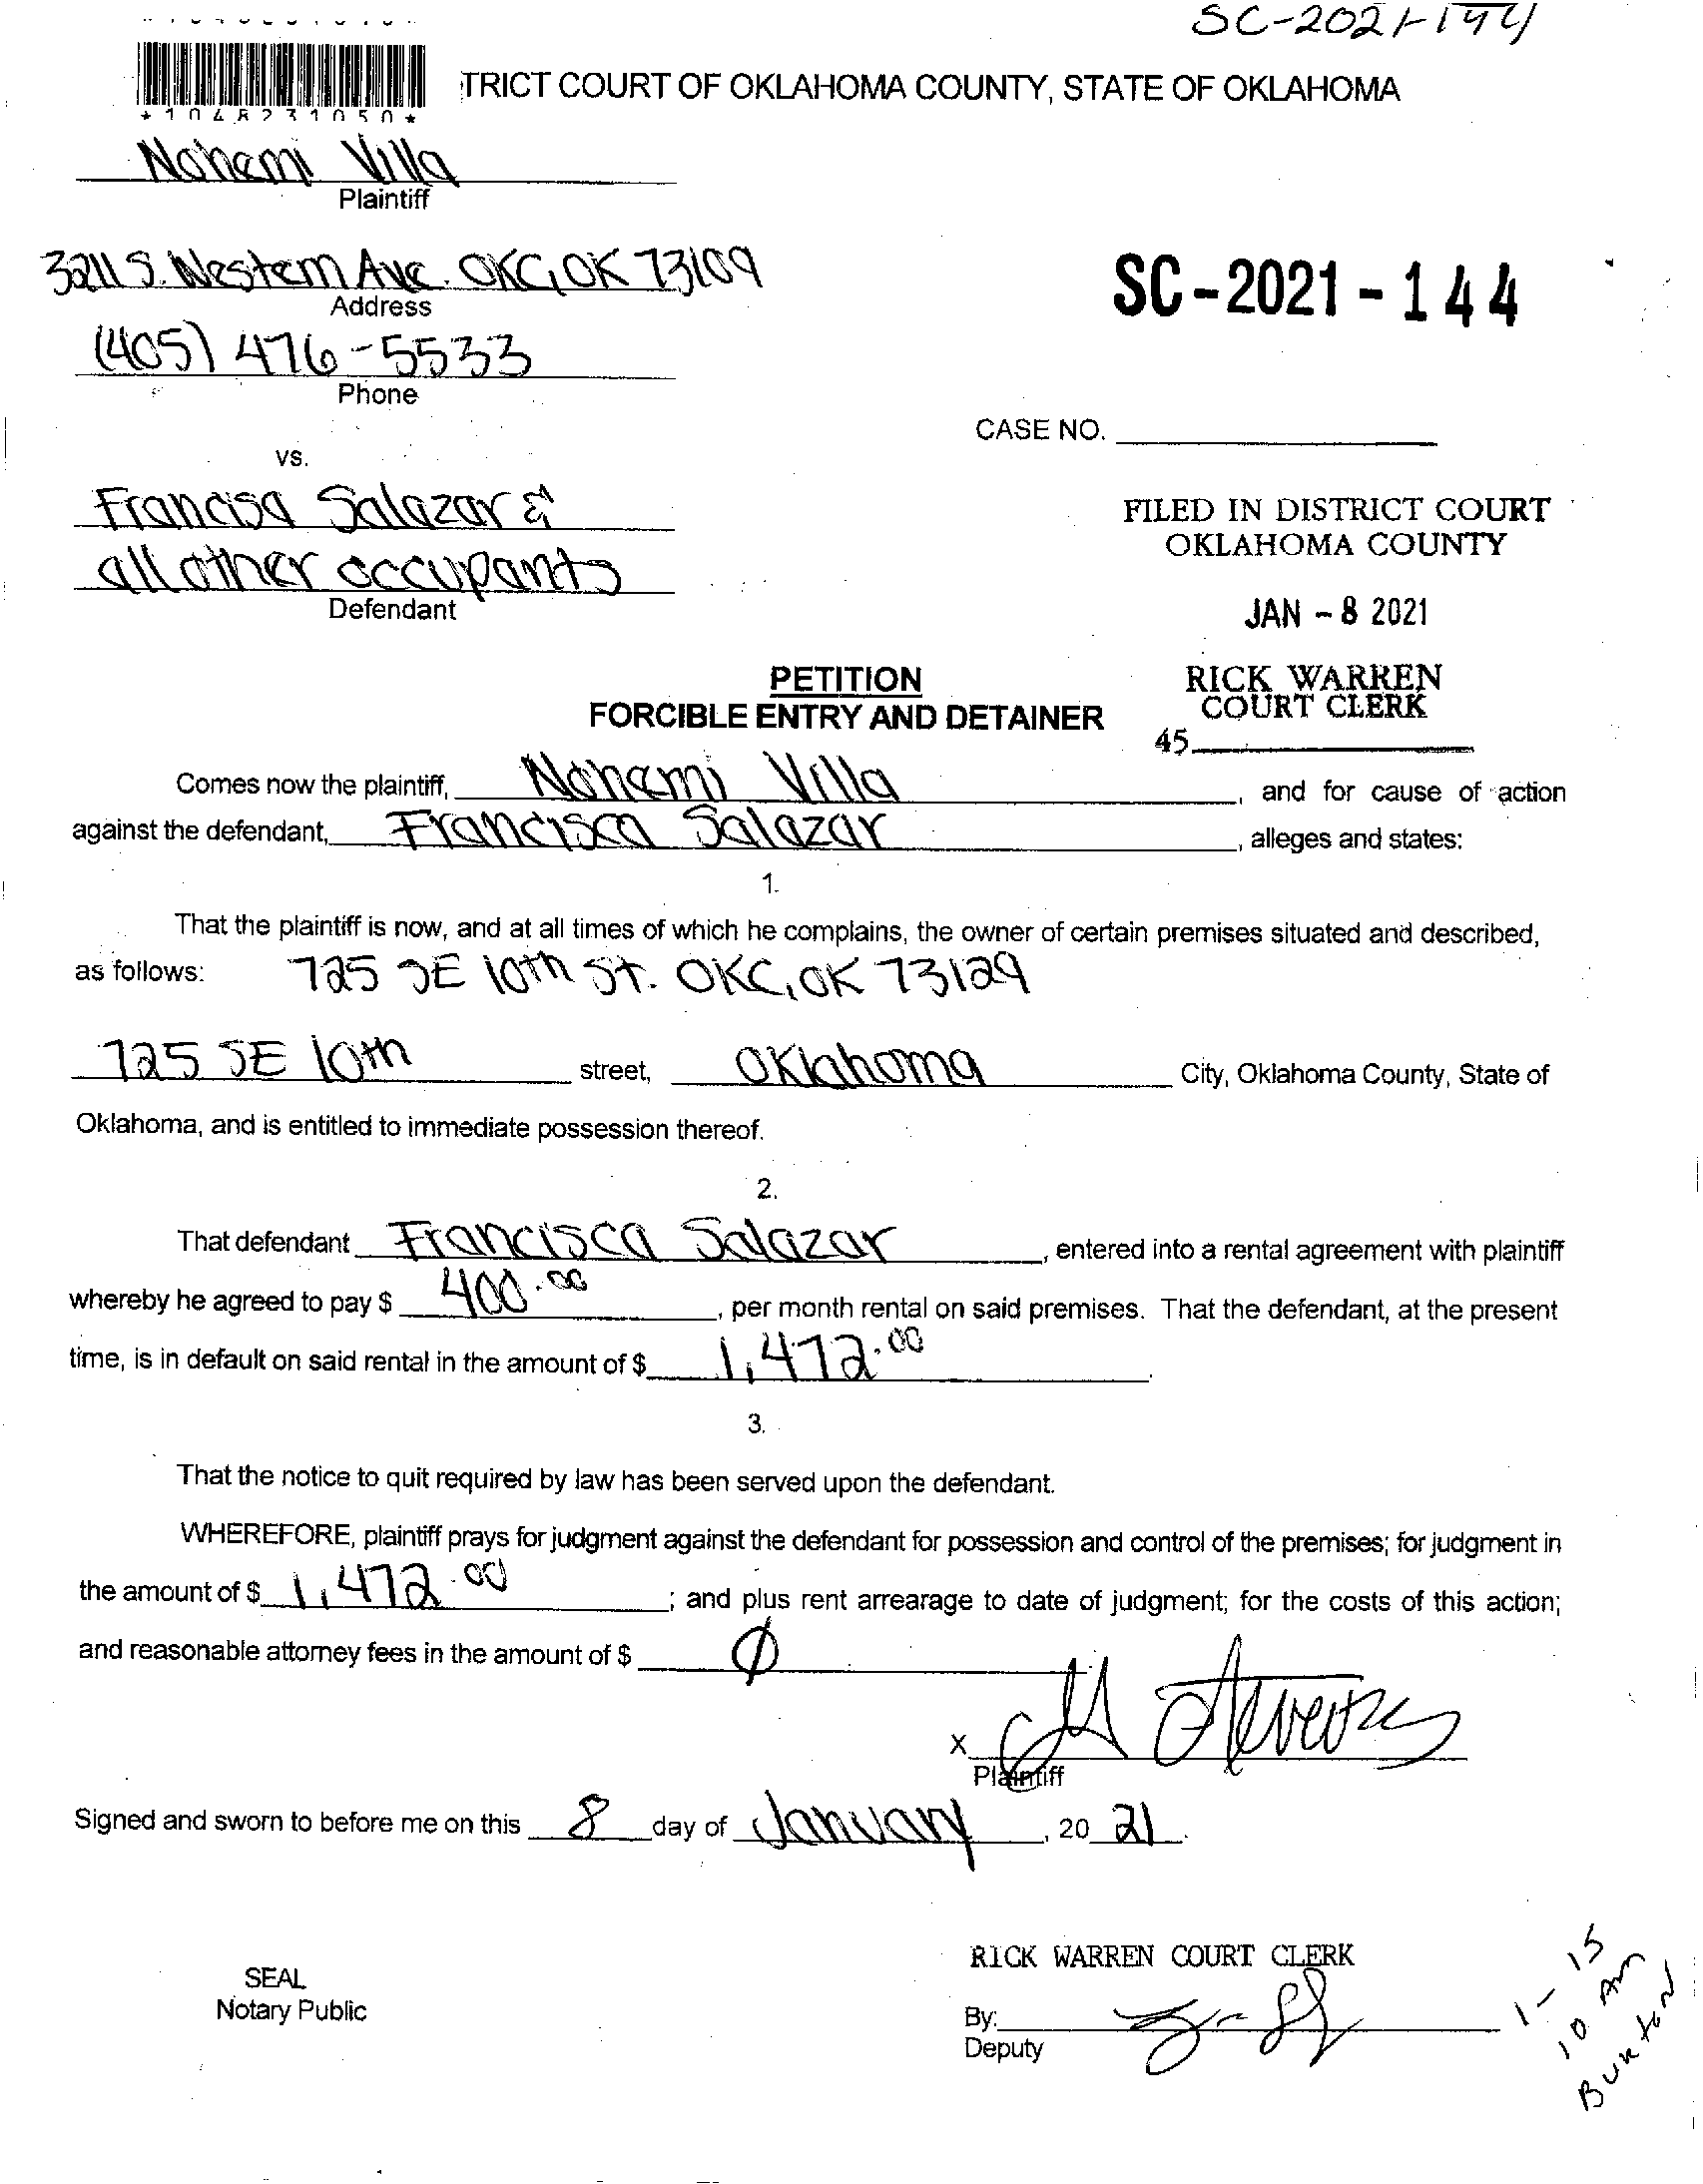 SC-2021-144
TRICT COURT OF OKLAHOMA COUNTY, STATE OF OKLAHOMA
*1048231050*
Nohemi Villa
Plaintiff
3211 S. Western Ave. OKC, OK 73109
Address
SC-2021-144
(405) 476-5533
Phone
CASE NO.
vs.
Francisa Salazar &
all other occupants
Defendant
FILED IN DISTRICT COURT
OKLAHOMA COUNTY
JAN - 8 2021
RICK WARREN
COURT CLERK
45
PETITION
FORCIBLE ENTRY AND DETAINER
Comes now the plaintiff, Nohemi Villa, and for cause of action
against the defendant, Francisca Salazar, alleges and states:
1.
That the plaintiff is now, and at all times of which he complains, the owner of certain premises situated and described,
as follows: 725 SE 10th St. OKC, OK 73129
725 SE 10th street, Oklahoma City, Oklahoma County, State of
Oklahoma, and is entitled to immediate possession thereof.
2.
That defendant Francisca Salazar, entered into a rental agreement with plaintiff
whereby he agreed to pay $ 400.00, per month rental on said premises. That the defendant, at the present
time, is in default on said rental in the amount of $ 1,472.00.
3.
That the notice to quit required by law has been served upon the defendant.
WHEREFORE, plaintiff prays for judgment against the defendant for possession and control of the premises; for judgment in
the amount of $ 1,472.00; and plus rent arrearage to date of judgment; for the costs of this action;
and reasonable attorney fees in the amount of $ Ø
X
Plaintiff
Signed and sworn to before me on this 8 day of January, 20 21.
RICK WARREN COURT CLERK
SEAL
Notary Public
By:
Deputy
1-15
10 Am
Buxton